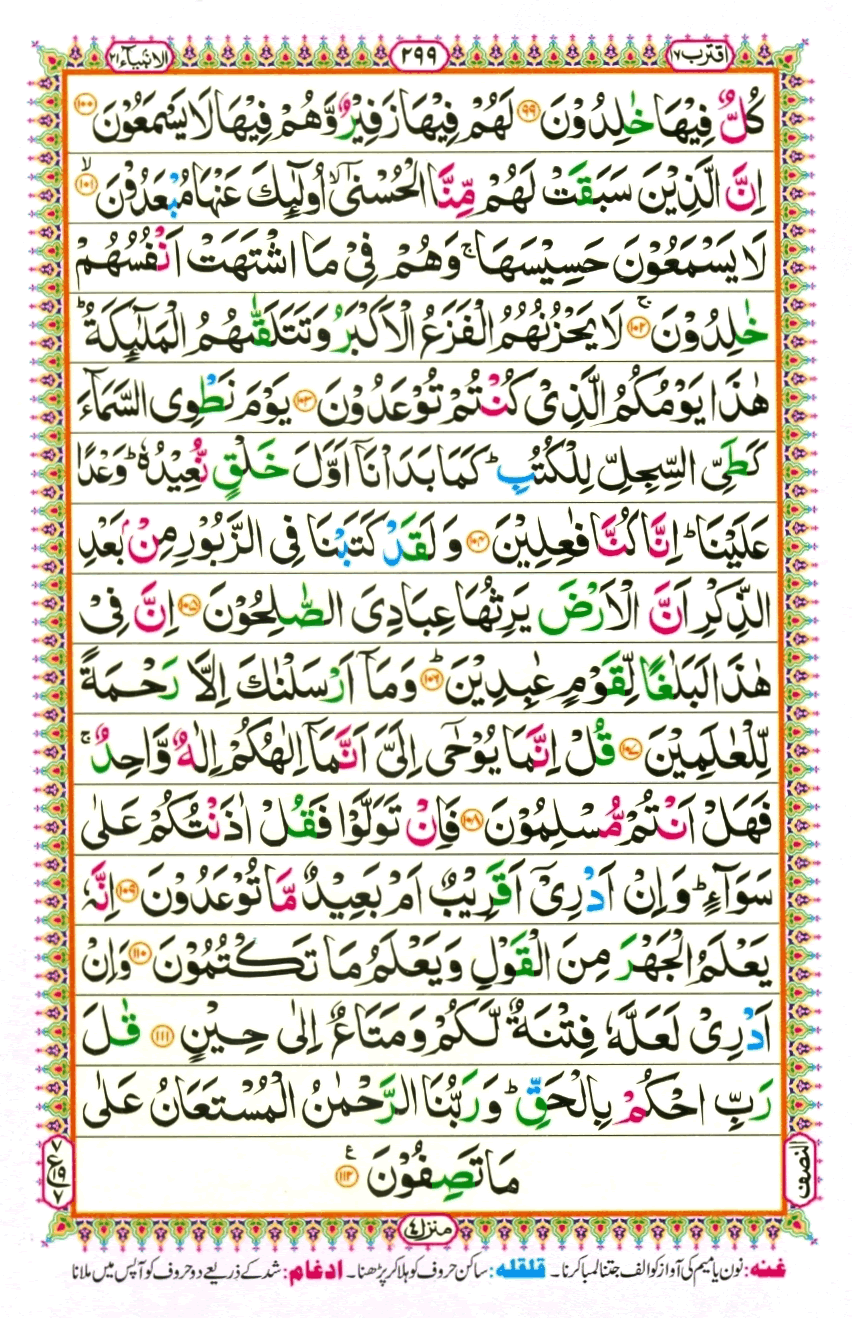 اقترب ١٧
٢٩٩
الانبیآء ٢١
كُلٌّ فِیْهَا خٰلِدُوْنَ ۝٩٩ لَهُمْ فِیْهَا زَفِیْرٌ وَّهُمْ فِیْهَا لَا یَسْمَعُوْنَ ۝١٠٠
اِنَّ الَّذِیْنَ سَبَقَتْ لَهُمْ مِّنَّا الْحُسْنٰۤیۙ اُولٰٓىِٕكَ عَنْهَا مُبْعَدُوْنَ ۝١٠١ۙ
لَا یَسْمَعُوْنَ حَسِیْسَهَاۚ وَهُمْ فِیْ مَا اشْتَهَتْ اَنْفُسُهُمْ
خٰلِدُوْنَ ۝١٠٢ۚ لَا یَحْزُنُهُمُ الْفَزَعُ الْاَكْبَرُ وَتَتَلَقّٰىهُمُ الْمَلٰٓىِٕكَةُؕ
هٰذَا یَوْمُكُمُ الَّذِیْ كُنْتُمْ تُوْعَدُوْنَ ۝١٠٣ یَوْمَ نَطْوِی السَّمَآءَ
كَطَیِّ السِّجِلِّ لِلْكُتُبِؕ كَمَا بَدَاْنَاۤ اَوَّلَ خَلْقٍ نُّعِیْدُهٗؕ وَعْدًا
عَلَیْنَاؕ اِنَّا كُنَّا فٰعِلِیْنَ ۝١٠٤ وَلَقَدْ كَتَبْنَا فِی الزَّبُوْرِ مِنْۢ بَعْدِ
الذِّكْرِ اَنَّ الْاَرْضَ یَرِثُهَا عِبَادِیَ الصّٰلِحُوْنَ ۝١٠٥ اِنَّ فِیْ
هٰذَا لَبَلٰغًا لِّقَوْمٍ عٰبِدِیْنَ ۝١٠٦ؕ وَمَاۤ اَرْسَلْنٰكَ اِلَّا رَحْمَةً
لِّلْعٰلَمِیْنَ ۝١٠٧ قُلْ اِنَّمَا یُوْحٰۤی اِلَیَّ اَنَّمَاۤ اِلٰهُكُمْ اِلٰهٌ وَّاحِدٌۚ
فَهَلْ اَنْتُمْ مُّسْلِمُوْنَ ۝١٠٨ فَاِنْ تَوَلَّوْا فَقُلْ اٰذَنْتُكُمْ عَلٰی
سَوَآءٍؕ وَاِنْ اَدْرِیْۤ اَقَرِیْبٌ اَمْ بَعِیْدٌ مَّا تُوْعَدُوْنَ ۝١٠٩ اِنَّهٗ
یَعْلَمُ الْجَهْرَ مِنَ الْقَوْلِ وَیَعْلَمُ مَا تَكْتُمُوْنَ ۝١١٠ وَاِنْ
اَدْرِیْ لَعَلَّهٗ فِتْنَةٌ لَّكُمْ وَمَتَاعٌ اِلٰی حِیْنٍ ۝١١١ قٰلَ
رَبِّ احْكُمْ بِالْحَقِّؕ وَرَبُّنَا الرَّحْمٰنُ الْمُسْتَعَانُ عَلٰی
مَا تَصِفُوْنَ ۝١١٢
النصف
٧
ع ١٩
٧
منزل ٤
غنه: نون یا میم کی آواز کو الف جتنا لمبا کرنا۔ قلقله: ساکن حروف کو ہلا کر پڑھنا۔ ادغام: شد کے ذریعے دو حروف کو آپس میں ملانا